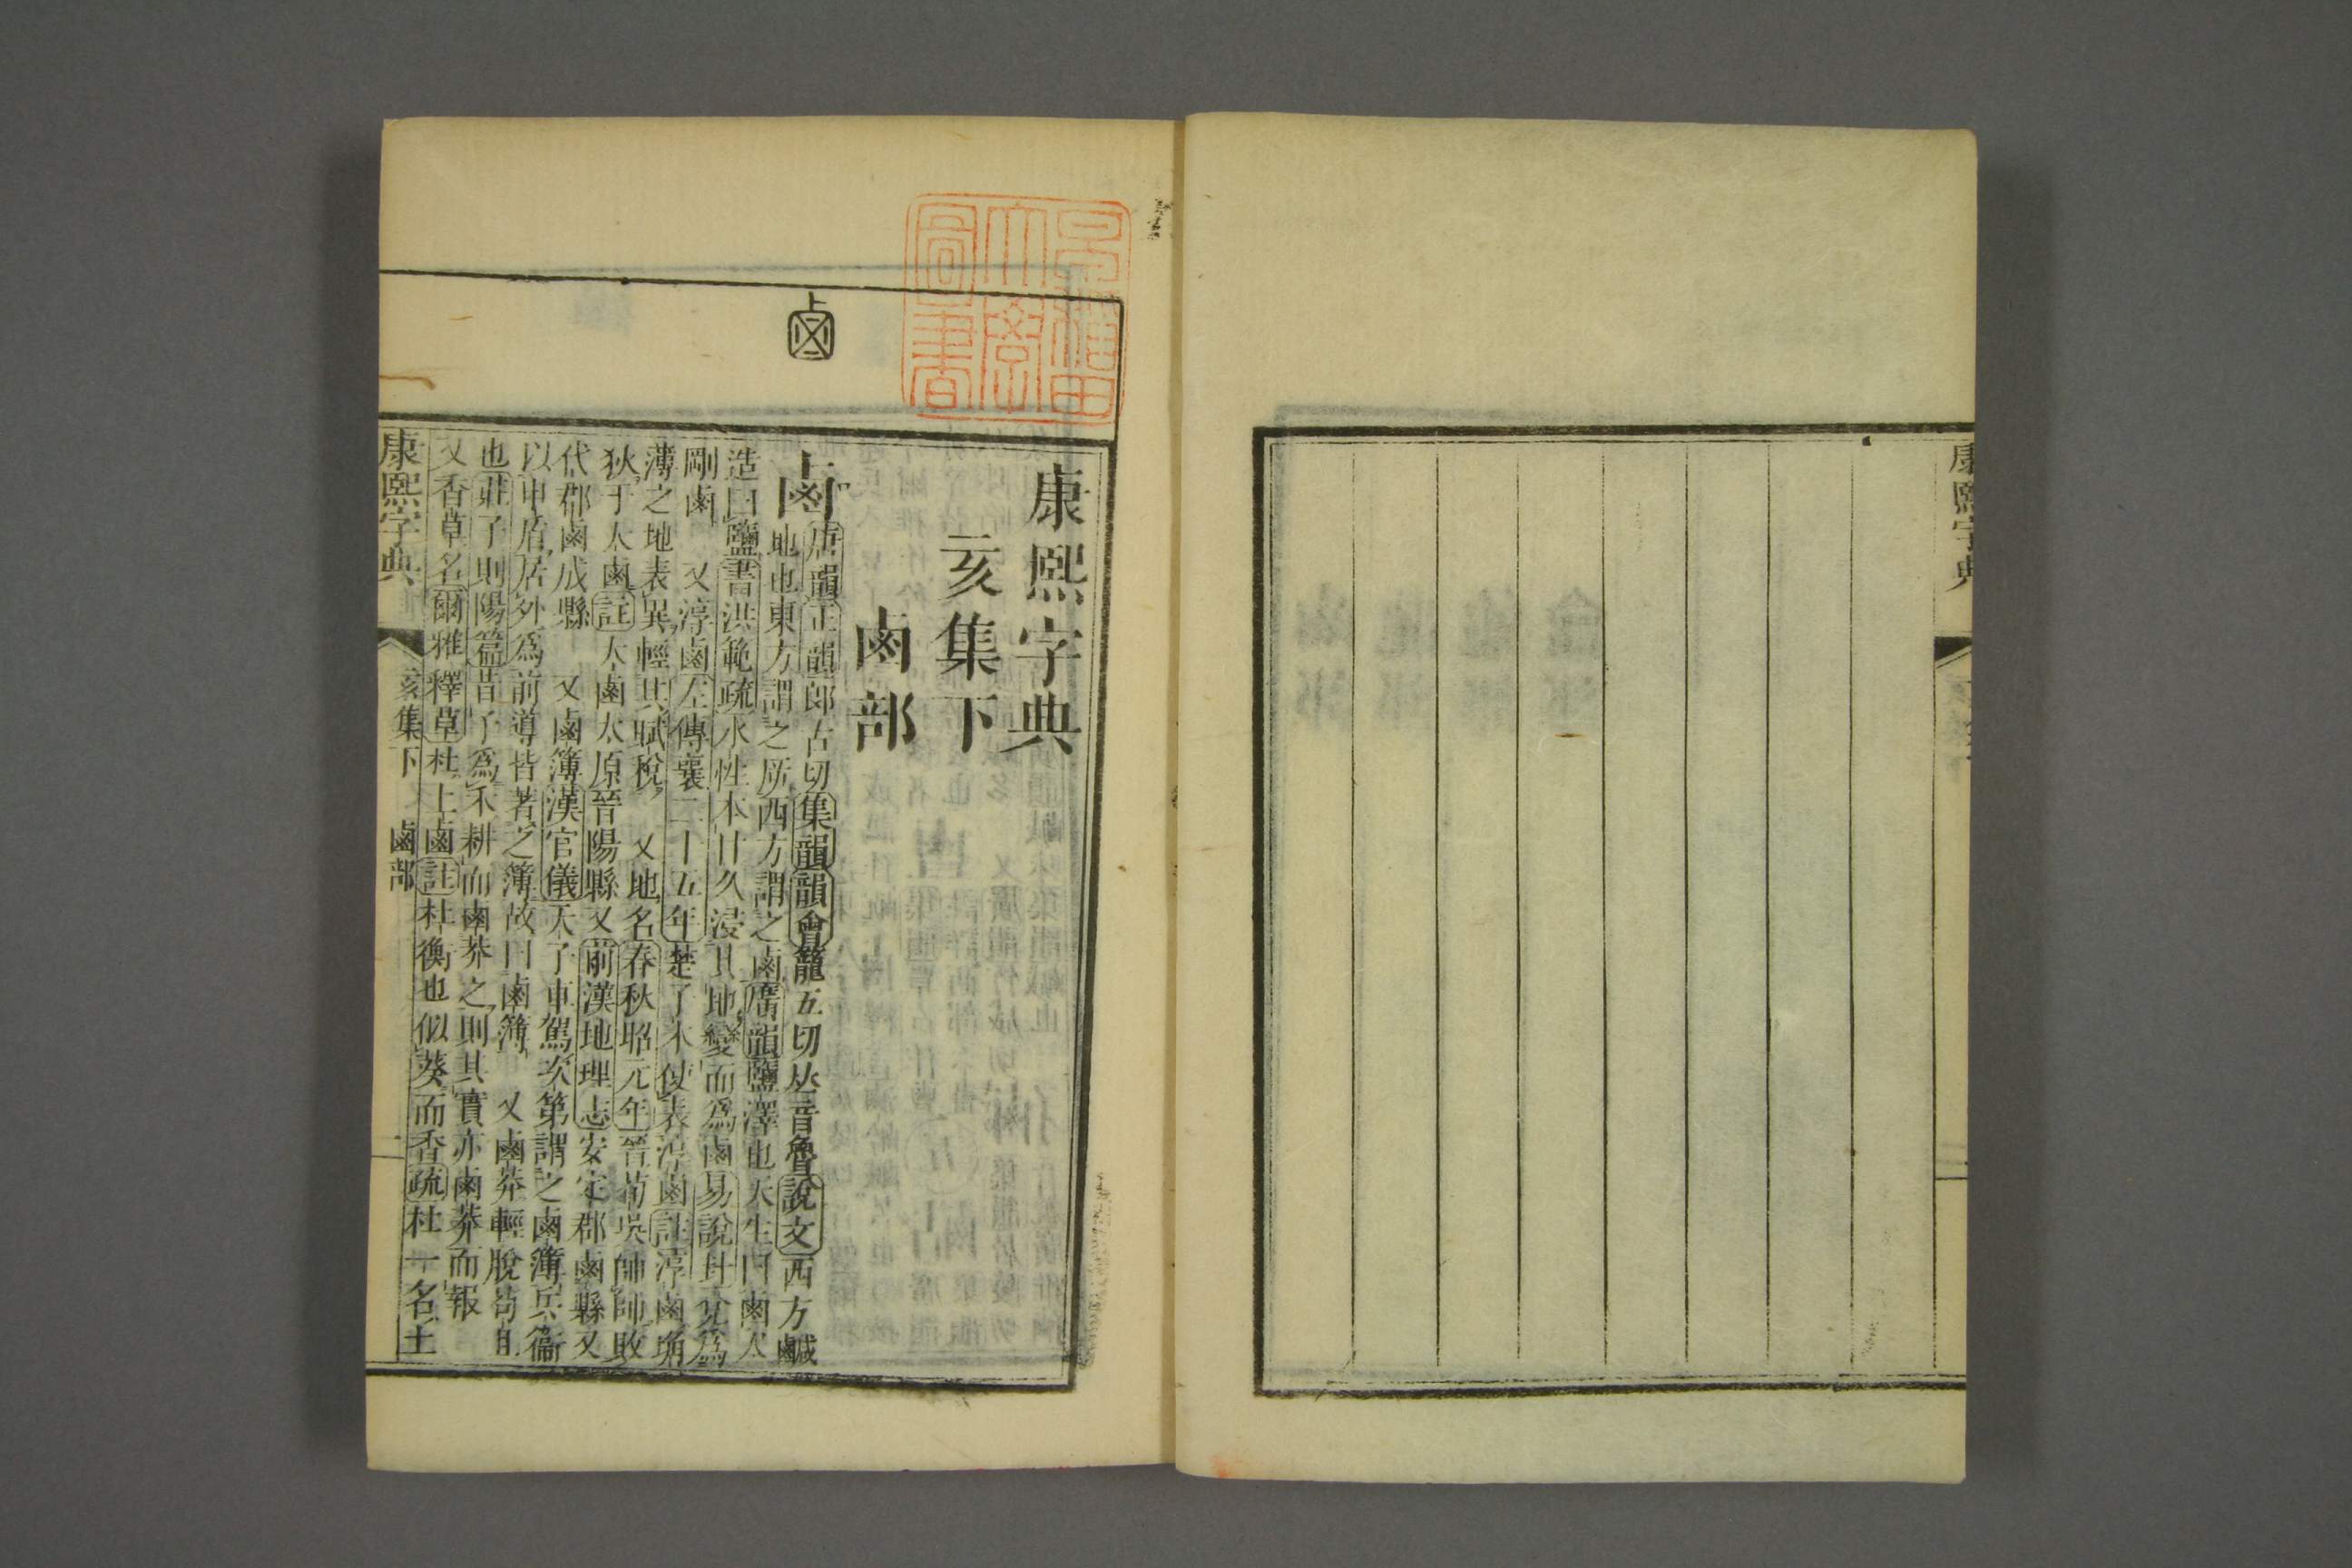 康熙字典
早稲田
大學
圖書
鹵
康熙字典
亥集下
鹵部
鹵 唐韻正韻郎古切集韻韻會籠五切𠀤音魯說文西方鹹
地也東方謂之㡿西方謂之鹵廣韻鹽澤也天生曰鹵人
造曰鹽書洪範疏水性本甘久浸其地變而爲鹵易說卦兌爲
剛鹵 又淳鹵左傳襄二十五年楚子木使表淳鹵註淳鹵埆
薄之地表異輕其賦稅 又地名春秋昭元年晉荀吳帥師敗
狄于大鹵註大鹵太原晉陽縣又前漢地理志安定郡鹵縣又
代郡鹵成縣 又鹵簿漢官儀天子車駕次第謂之鹵簿兵衞
以甲盾居外爲前導皆著之簿故曰鹵簿 又鹵莽輕脫苟且
也莊子則陽篇昔予爲禾耕而鹵莽之則其實亦鹵莽而報
又香草名爾雅釋草杜土鹵註杜衡也似葵而香疏杜一名土
康熙字典 亥集下 鹵部 一